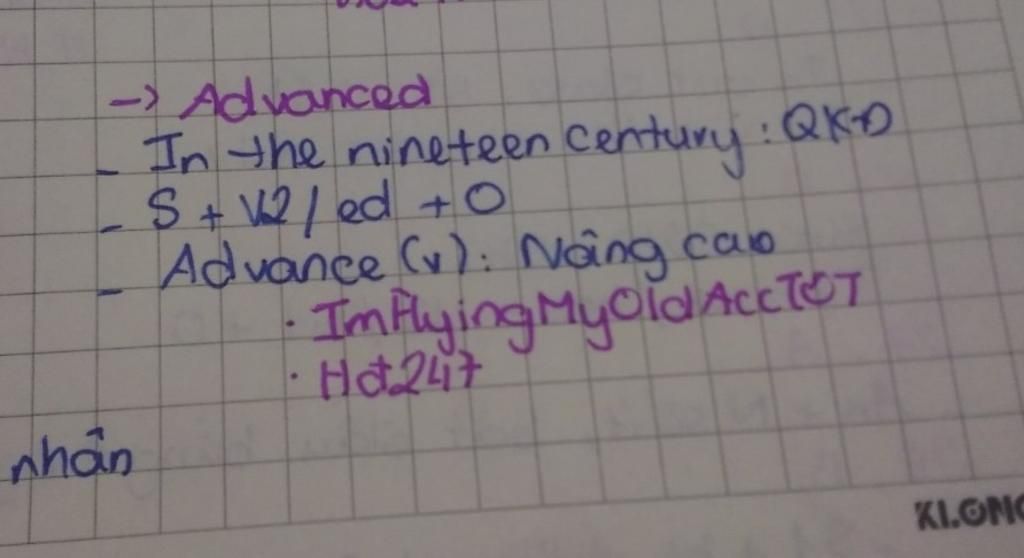 -> Advanced
- In the nineteen century : QKĐ
- S + V2/ed + O
- Advance (v) : Nâng cao
. ImFlyingMyOldAccTCT
. Hđ247
nhân
KLONG